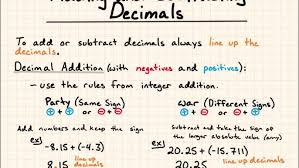 Decimals
To add or subtract decimals always line up the decimals.
Decimal Addition (with negatives and positives):
- use the rules from integer addition.
Party (Same Sign)
War (Different Signs)
Add numbers and keep the sign
Subtract and take the sign of the larger absolute value (amy)
ex) -8.15 + (-4.3)
ex) 20.25 + (-15.711)
8.15 line up decimals
20.25 line up decimals